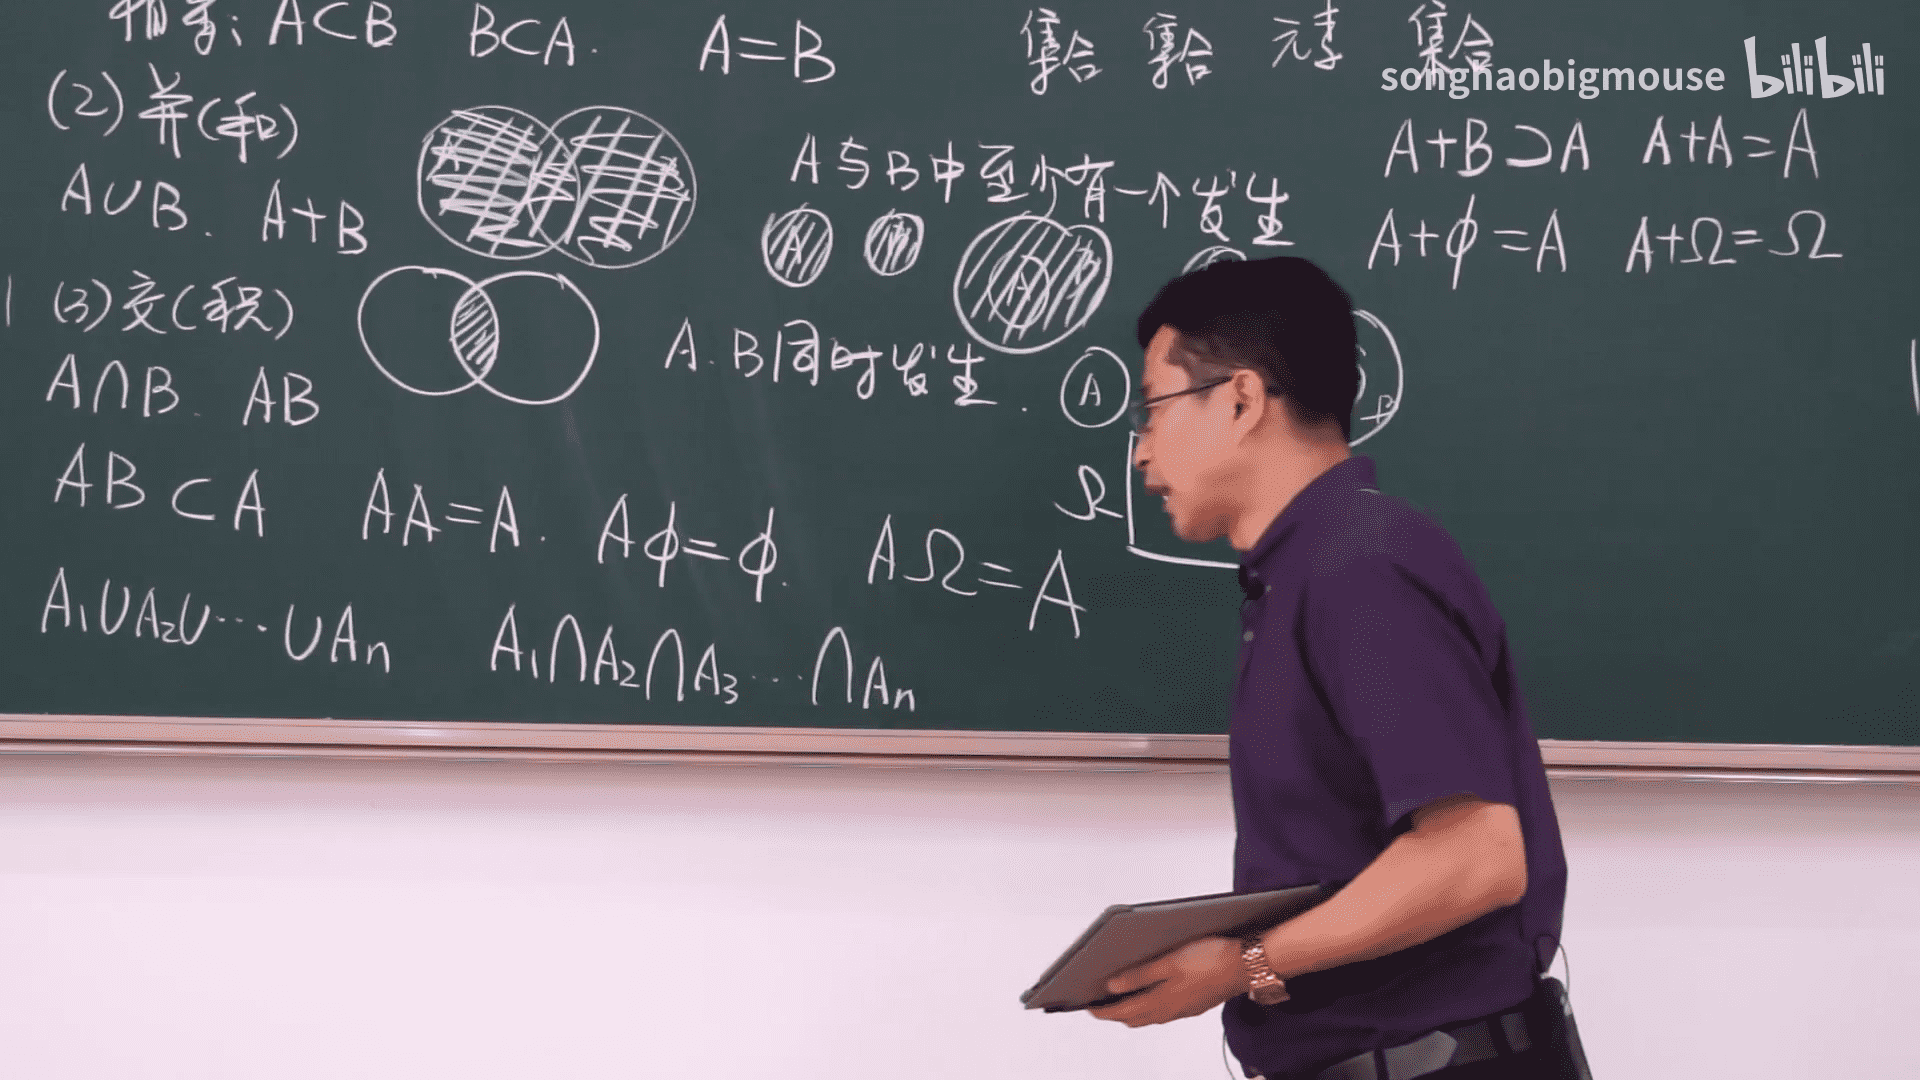 相等: A⊂B B⊂A. A=B
集合 集合 元素 集合
songhaobigmouse bilibili
(2) 并(和)
A∪B. A+B
A与B中至少有一个发生
A
A
A+B⊃A A+A=A
A+φ=A A+Ω=Ω
(3) 交(积)
A∩B. AB
A.B同时发生.
A
B
Ω
AB⊂A AA=A. Aφ=φ. AΩ=A
A₁∪A₂∪···∪Aₙ A₁∩A₂∩A₃···∩Aₙ